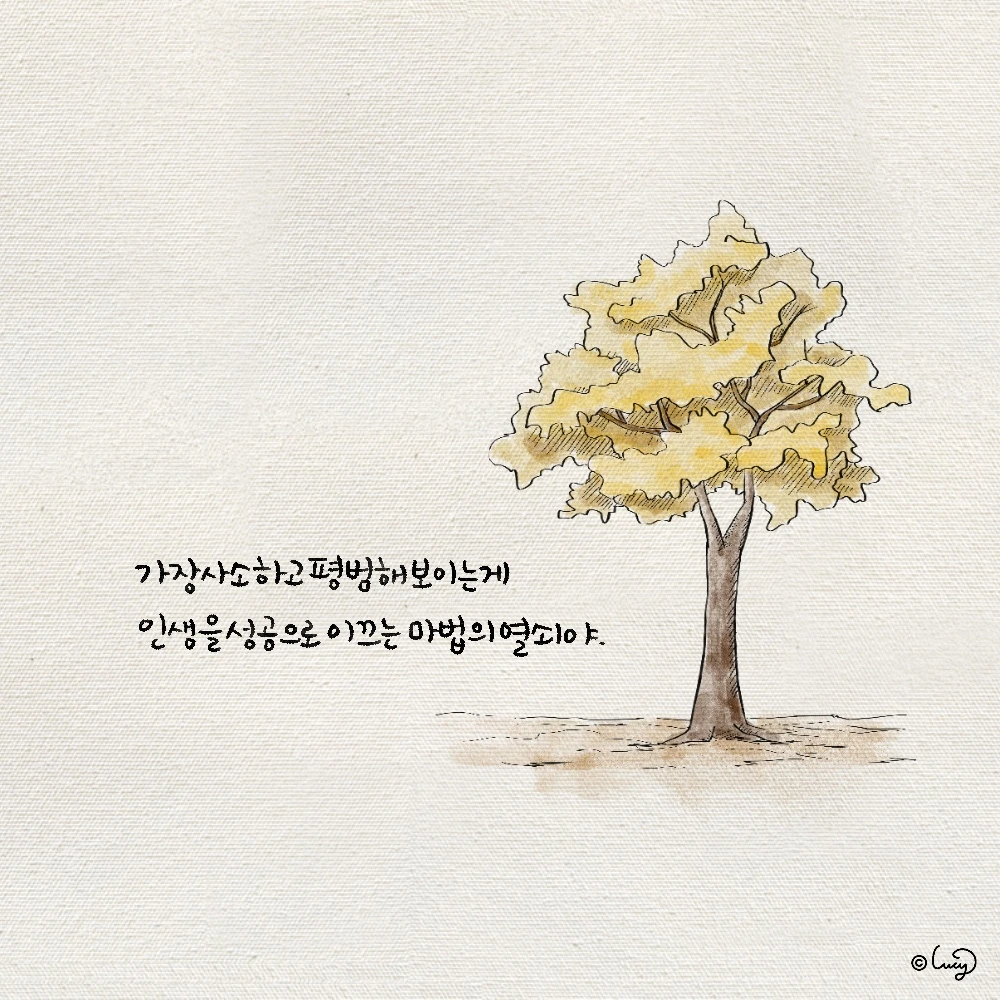 가장사소하고평범해보이는게
인생을성공으로이끄는마법의열쇠야.
©Lucy